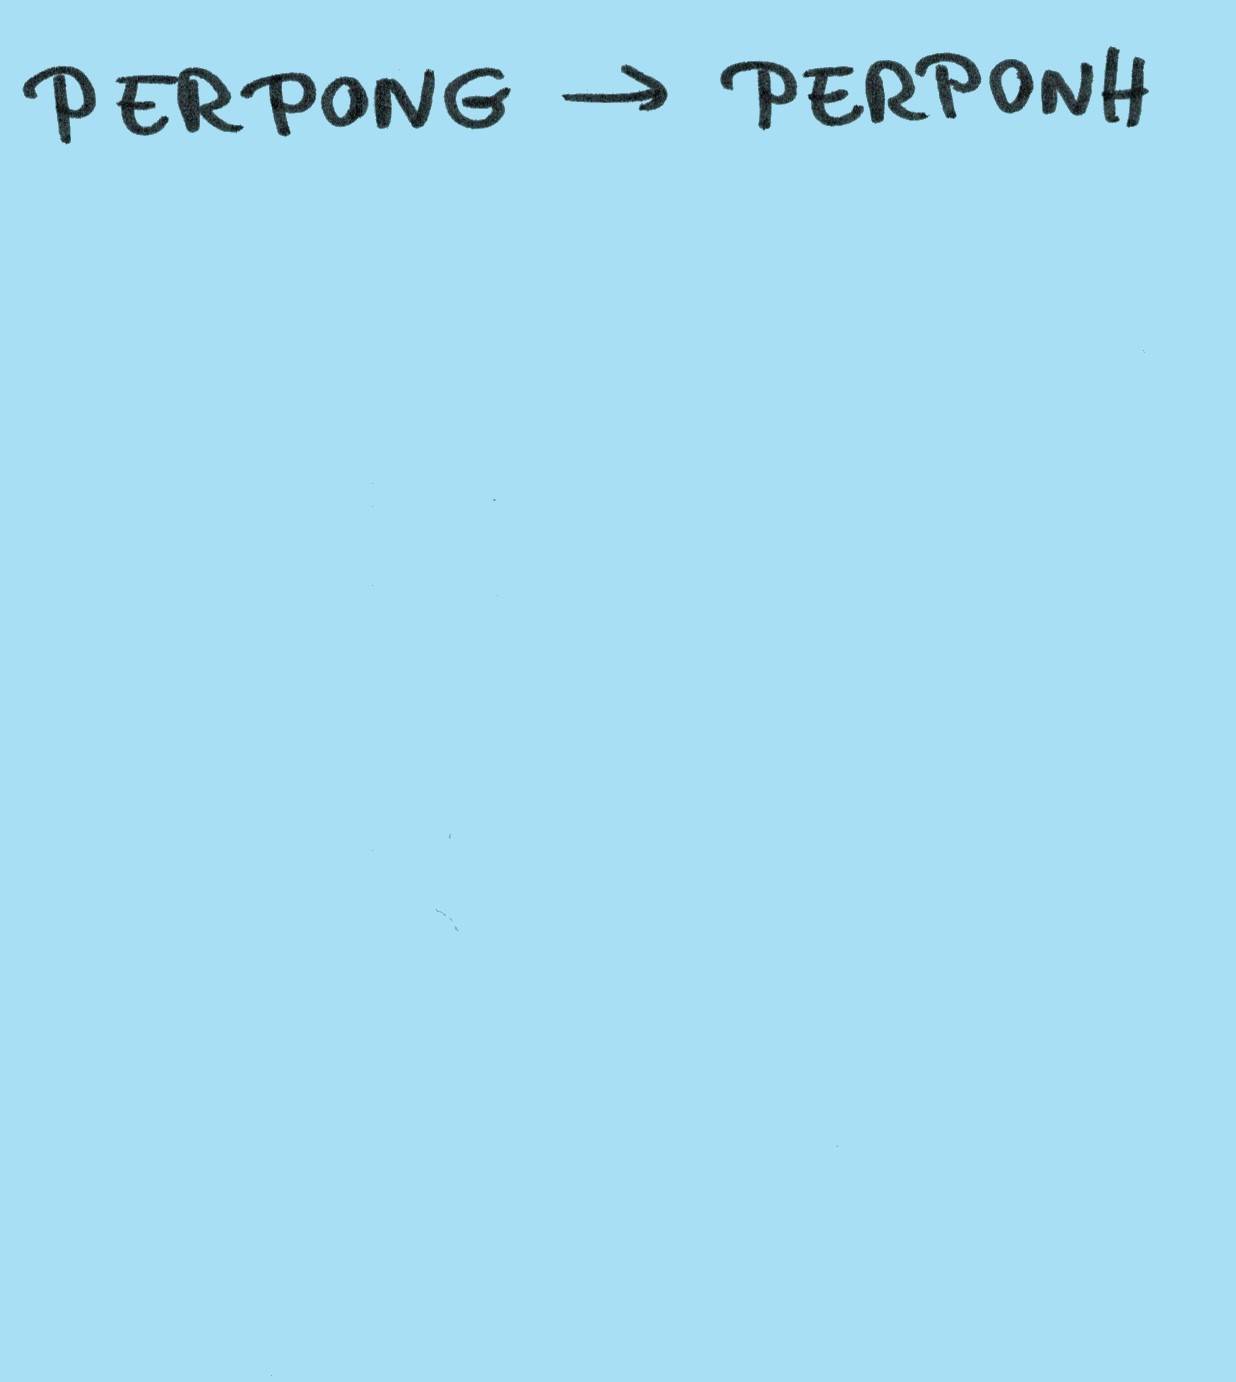 PERPONG → PERPONH